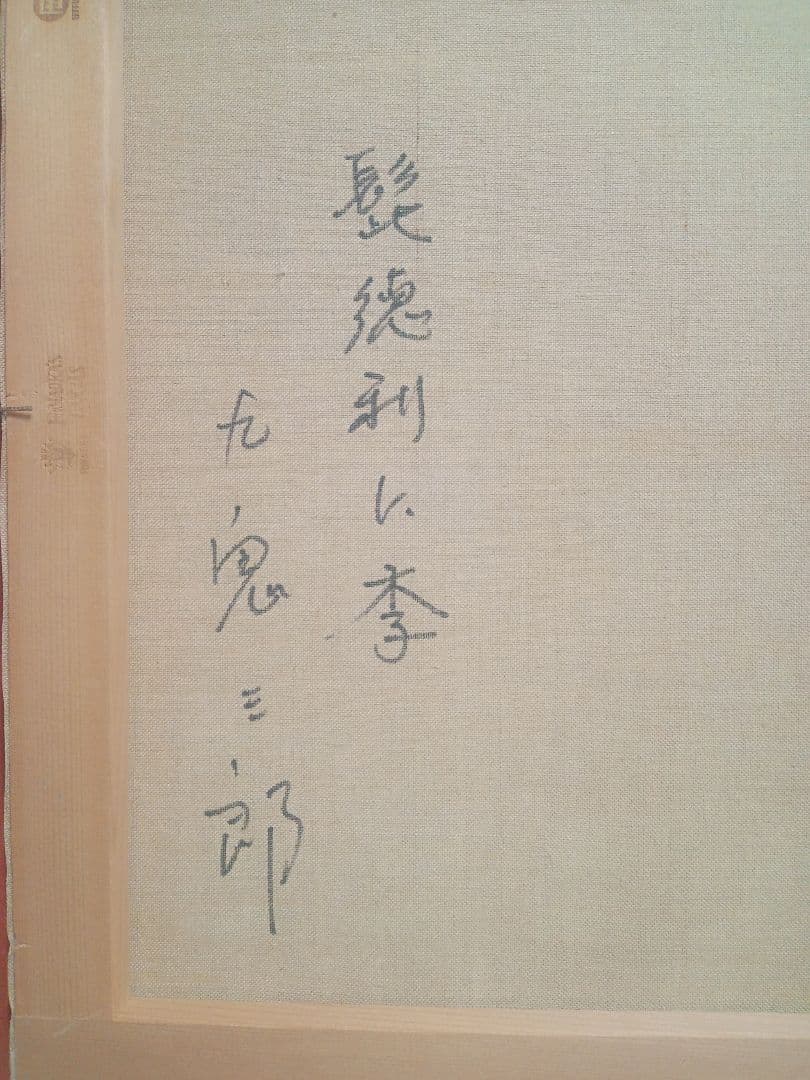 髭徳利に李
九鬼三郎